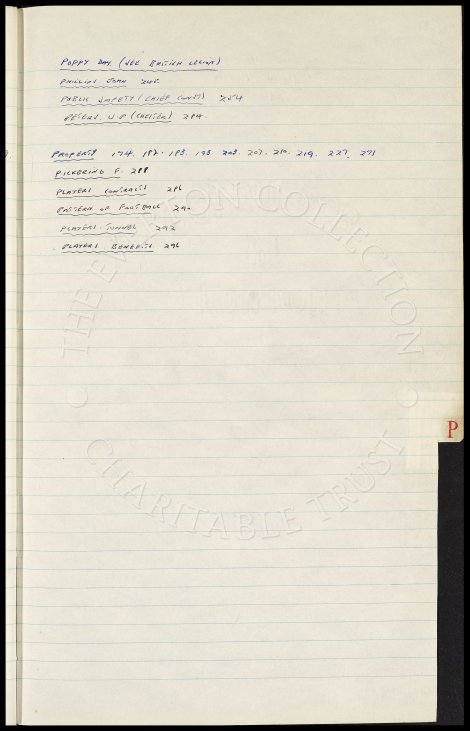 POPPY DAY (SEE BRITISH LEGION)
PHILLIPS JOHN 248.
PUBLIC SAFETY (CHIEF CONST) 254
PETERS. J.P (CHESTER) 284.
PROPERTY 174. 182. 183. 193. 203. 207. 210. 219. 227. 271
PICKERING F. 288
PLAYERS CONTRACTS 286
PATTERN OF FOOTBALL 290
PLAYERS TUNNEL 292
PLAYERS BENEFITS 296
P
THE EVERTON COLLECTION
CHARITABLE TRUST